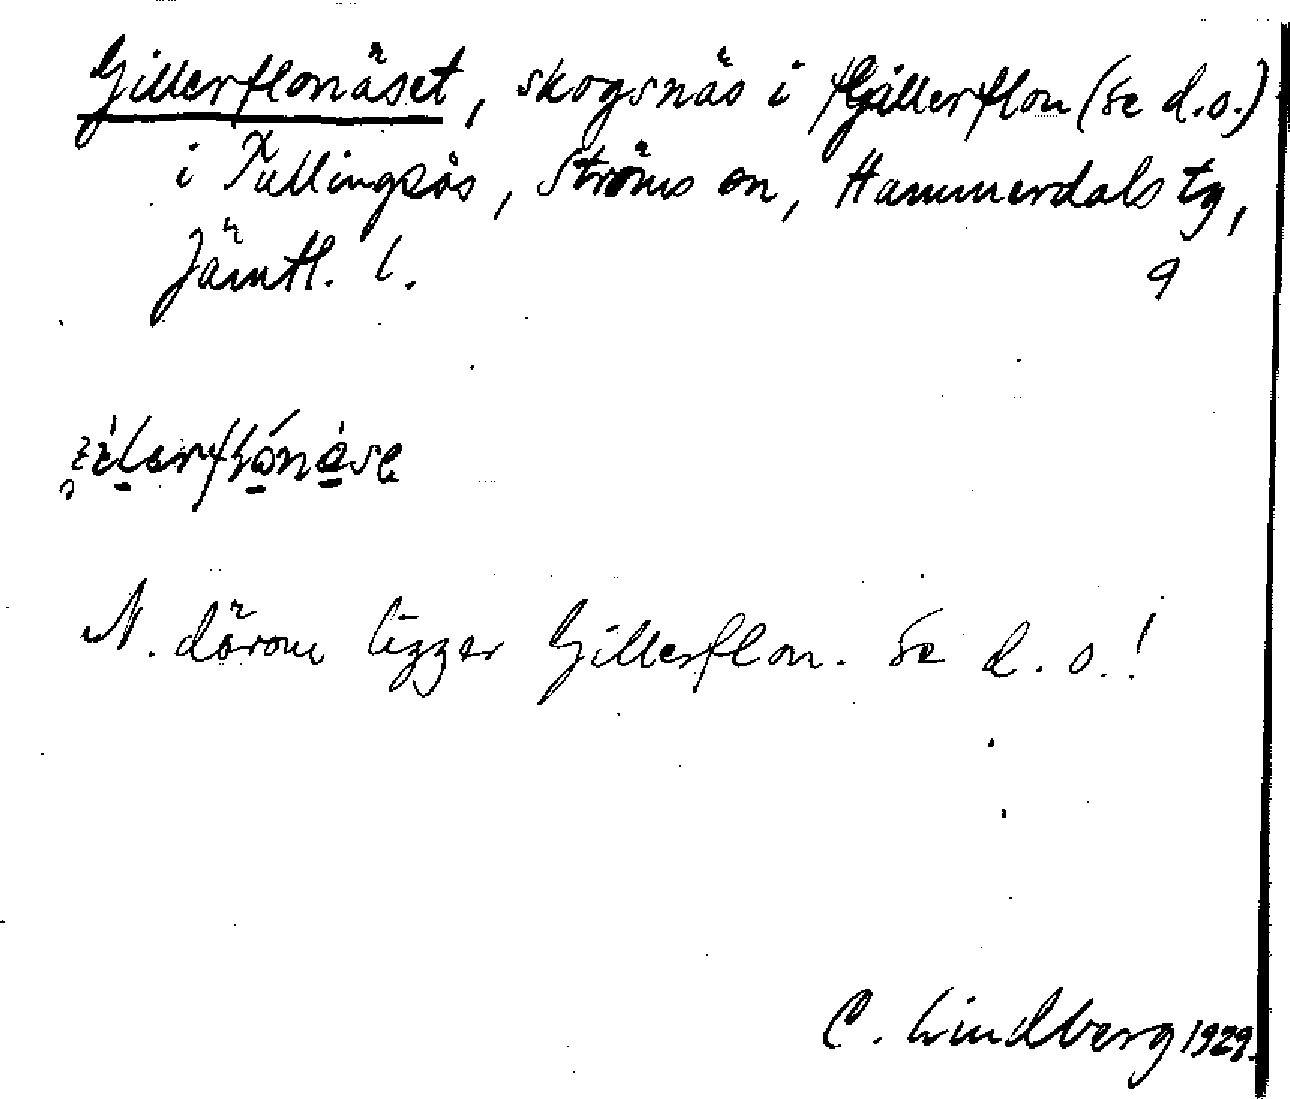 Gillerflonäset, skogsnäs i Gillerflon (Se d.o.)
i Tullingsås, Ströms sn, Hammerdals tg,
Jämtl. l.
9
N. därom ligger Gillerflon. Se d. o.!
C. Lindberg 1929.